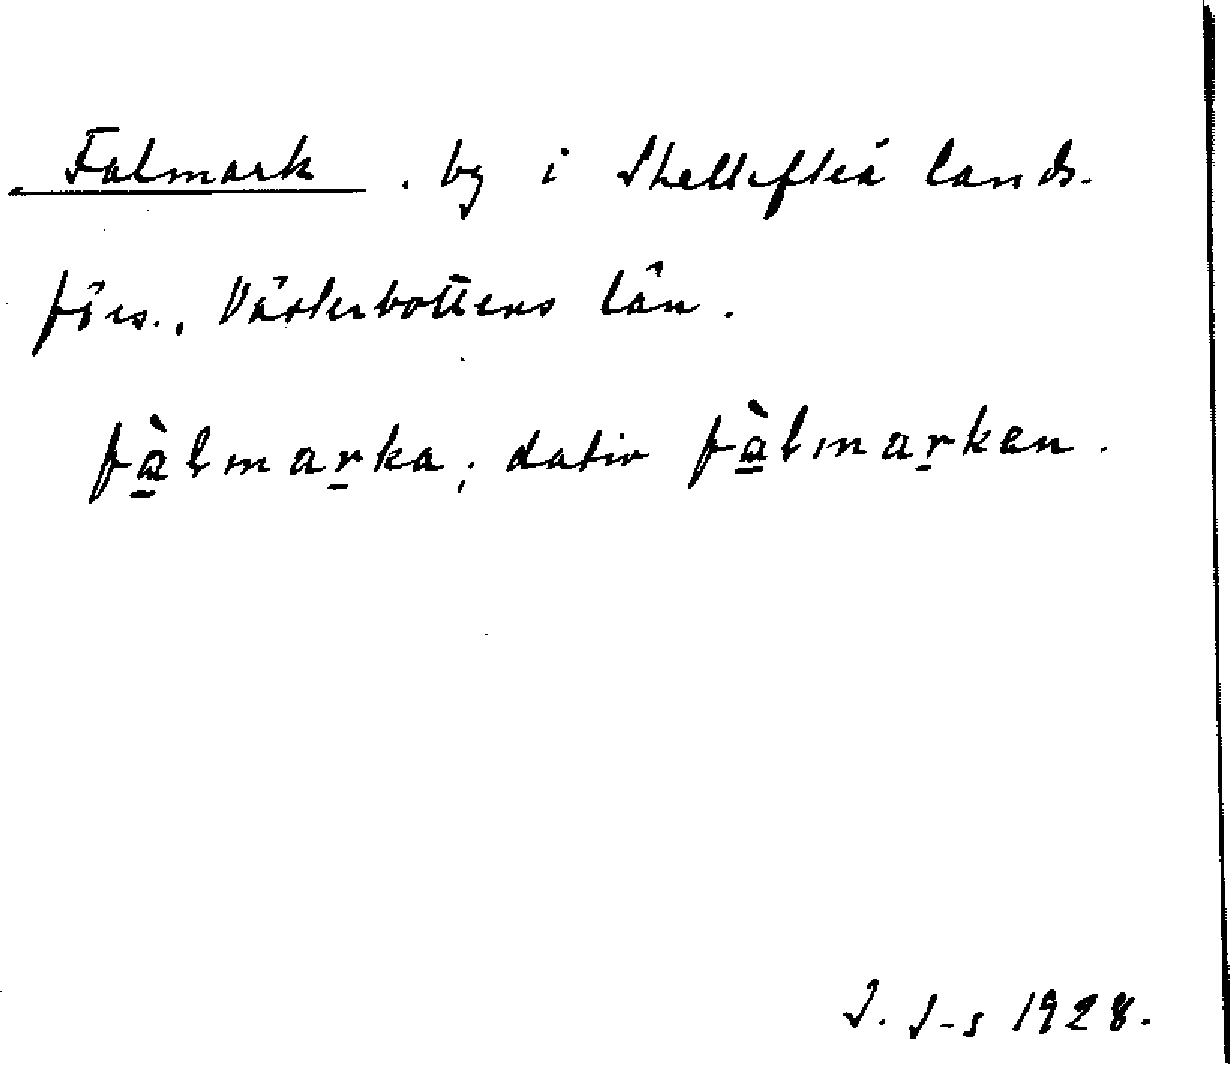 Falmark. by i Skellefteå lands-
förs., Västerbottens län.
fà̱lmaṟka; dativ fà̱lmaṟken.
J. J-s 1928.